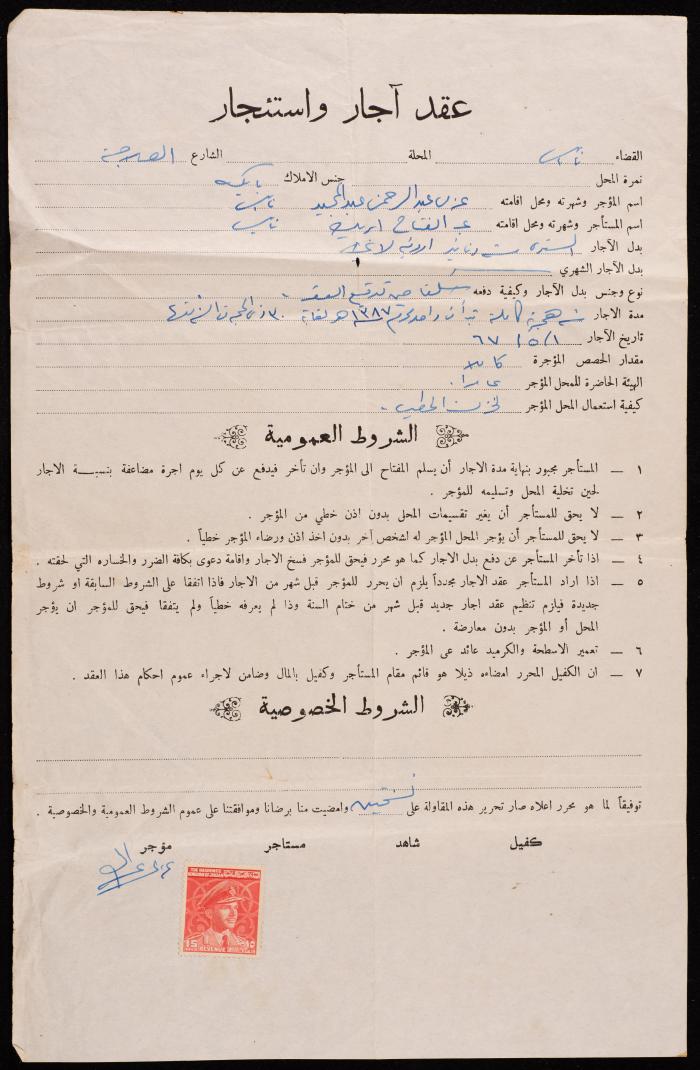 عقد آجار واستئجار
القضاء نابلس المحلة الشارع
نمرة المحل جنس الاملاك بايكه
اسم المؤجر وشهرته ومحل اقامته عبد الرحمن عبد المجيد نابلس
اسم المستأجر وشهرته ومحل اقامته عبد الفتاح نابلس
بدل الآجار دنانير اردنيه لا غير
بدل الآجار الشهري
نوع وجنس بدل الآجار وكيفية دفعه سلفا حين توقيع العقد .
مدة الاجار سنه هجرية كاملة تبدأ من واحد محرم ١٣٨٧ هـ لغاية ٣٠ ذي الحجة
تاريخ الآجار ٦٧/٥/١
مقدار الحصص المؤجرة كاملا
الهيئة الحاضرة للمحل المؤجر عامرا .
كيفية استعمال المحل المؤجر لخزن الحطب .
الشروط العمومية
١ — المستأجر مجبور بنهاية مدة الاجار أن يسلم المفتاح الى المؤجر وان تأخر فيدفع عن كل يوم اجرة مضاعفة بنسبة الاجار
لحين تخلية المحل وتسليمه للمؤجر .
٢ — لا يحق للمستأجر أن يغير تقسيمات المحلى بدون اذن خطي من المؤجر .
٣ — لا يحق للمستأجر أن يؤجر المحل المؤجر له لشخص آخر بدون اخذ اذن ورضاء المؤجر خطياً .
٤ — اذا تأخر المستأجر عن دفع بدل الاجار كما هو محرر فيحق للمؤجر فسخ الاجار واقامة دعوى بكافة الضرر والخساره التي لحقته .
٥ — اذا اراد المستأجر عقد الاجار مجدداً يلزم ان يحرر للمؤجر قبل شهر من الاجار فاذا اتفقا على الشروط السابقة او شروط
جديدة فيلزم تنظيم عقد اجار جديد قبل شهر من ختام السنة وذا لم يعرفه خطياً ولم يتفقا فيحق للمؤجر ان يؤجر
المحل أو المؤجر بدون معارضة .
٦ — تعمير الاسطحة والكرميد عائد عى المؤجر .
٧ — ان الكفيل المحرر امضاءه ذيلا هو قائم مقام المستأجر وكفيل بالمال وضامن لاجراء عموم احكام هذا العقد .
الشروط الخصوصية
توفيقاً لما هو محرر اعلاه صار تحرير هذه المقاولة على نسختين وامضيت منا برضانا وموافقتنا على عموم الشروط العمومية والخصوصية .
كفيل شاهد مستاجر مؤجر
THE HASHEMITE
KINGDOM OF JORDAN
15 REVENUE ١٥